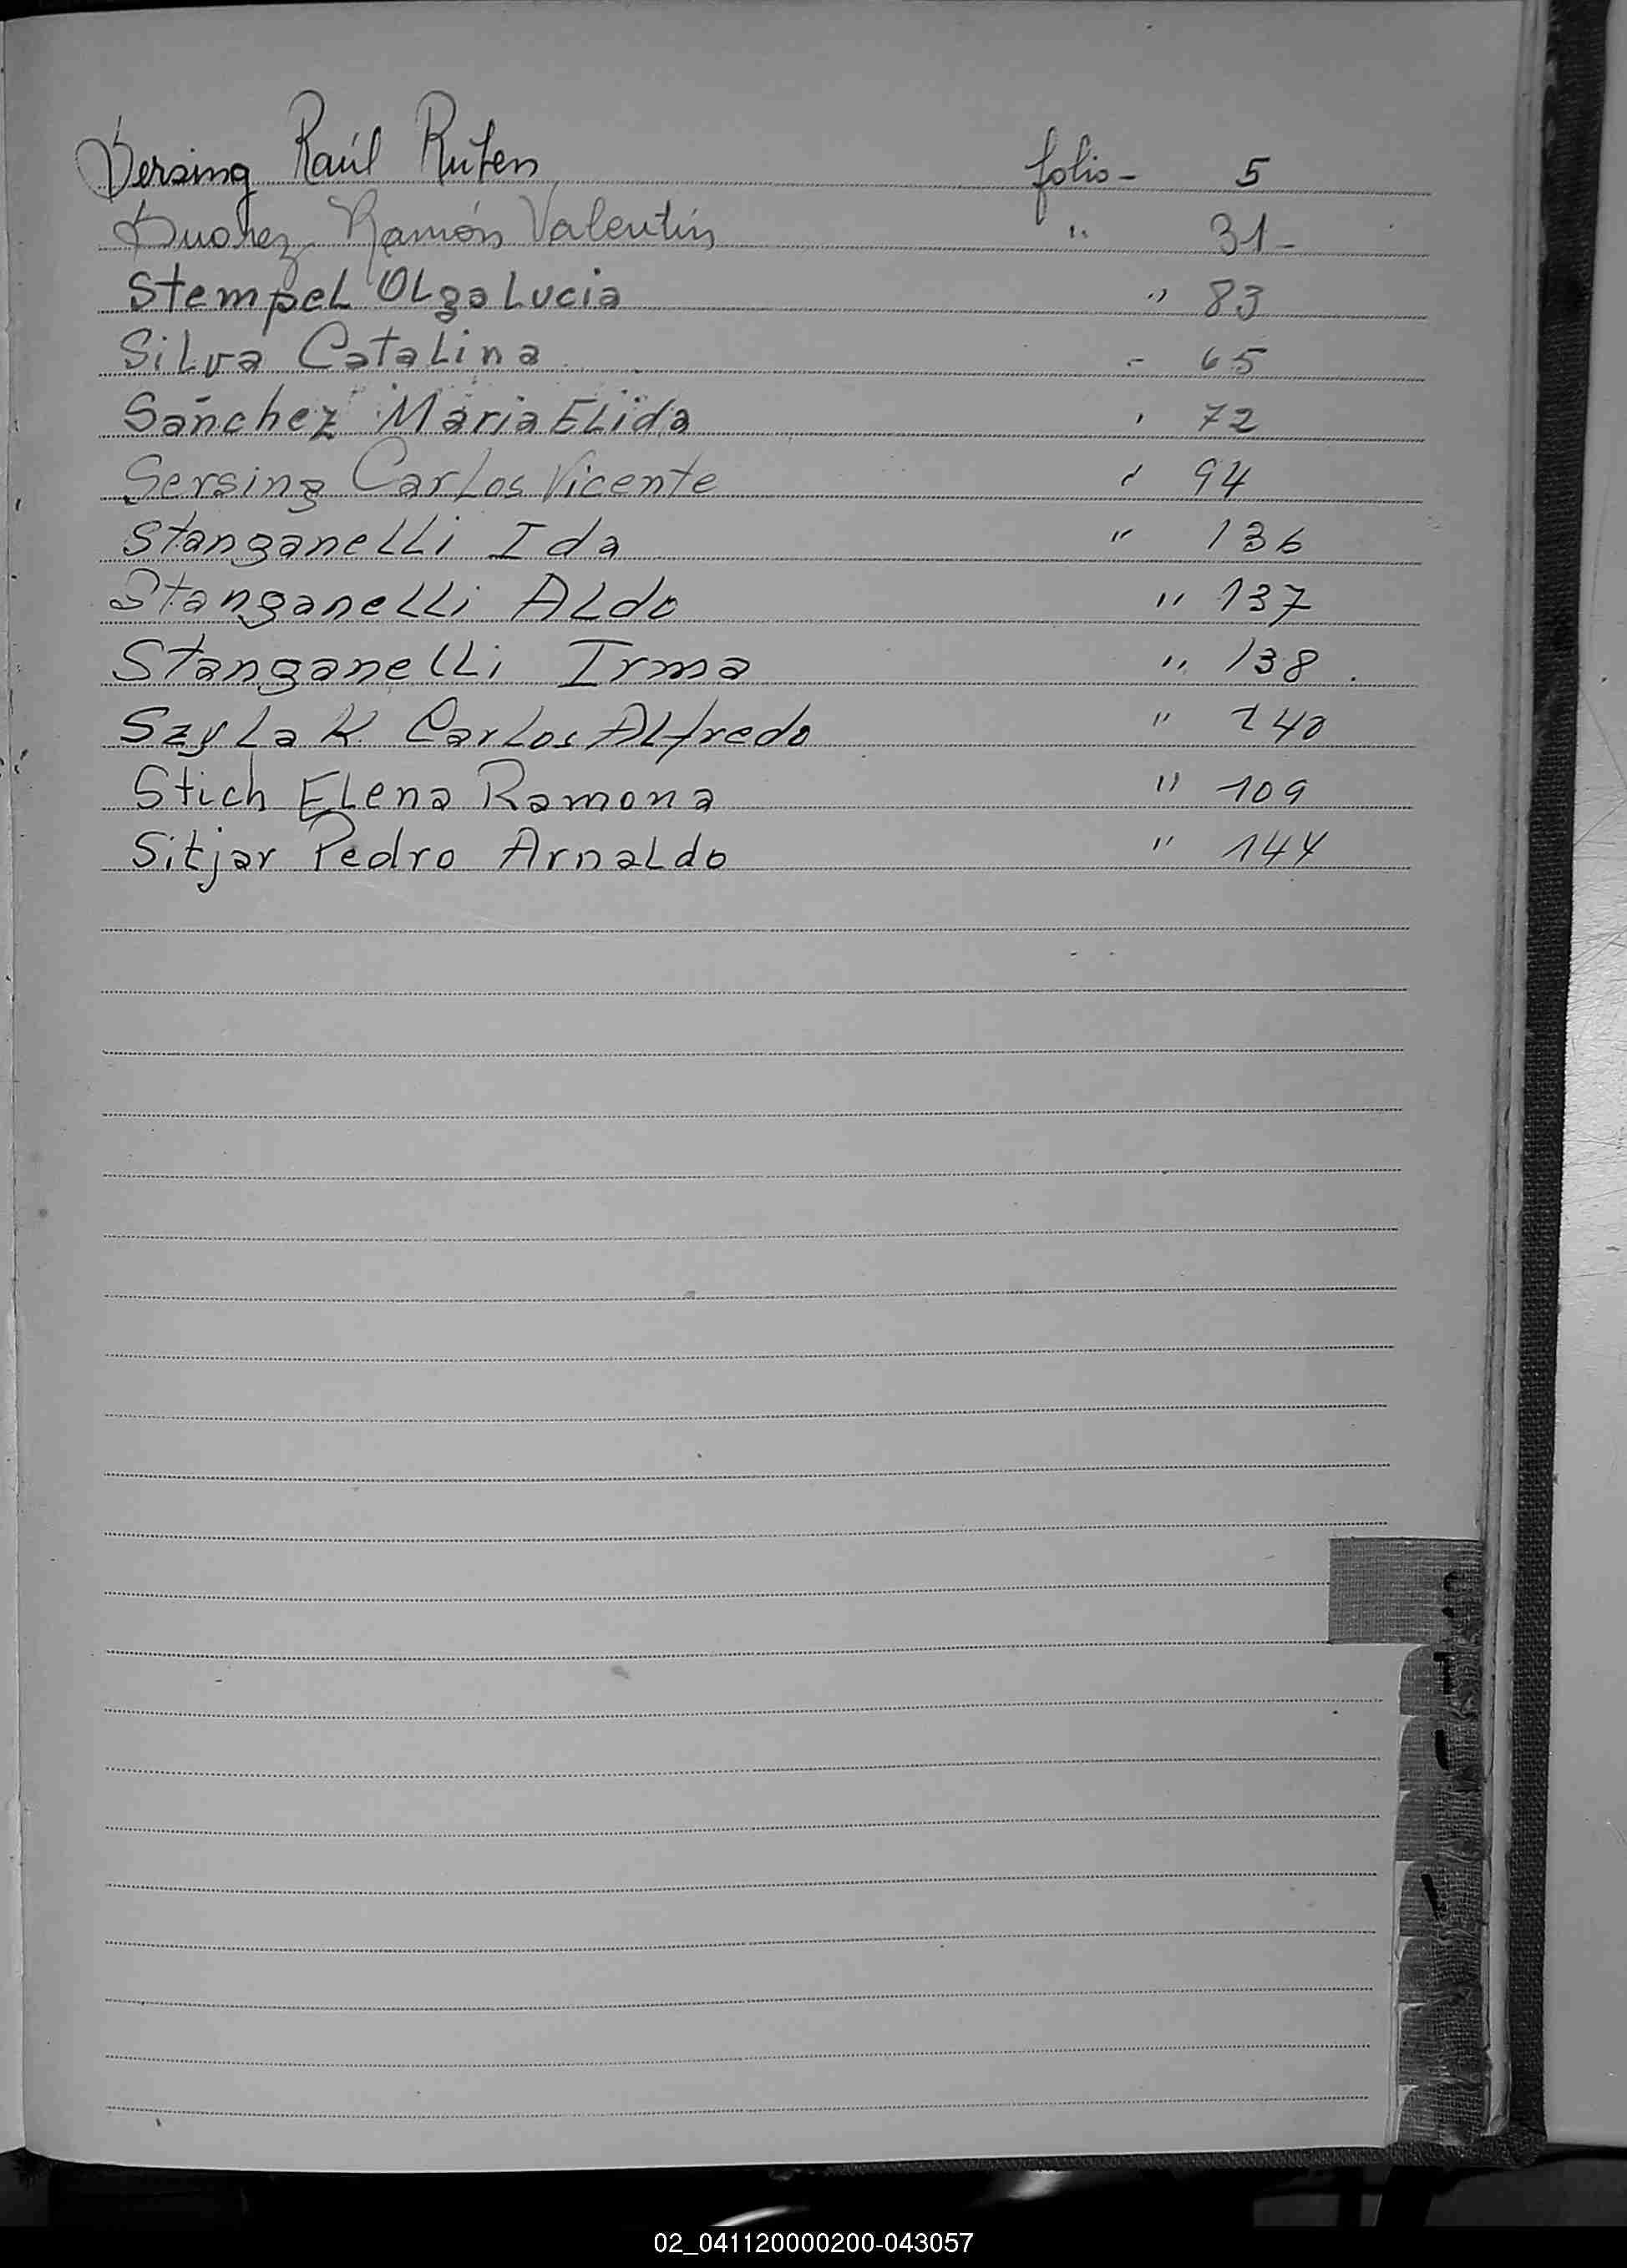 Sersing Raúl Ruben folio - 5
Suarez Ramón Valentín " 31 -
Stempel Olga Lucia " 83
Silva Catalina - 65
Sánchez María Elida ' 72
Sersing Carlos Vicente " 94
Stanganelli Ida " 136
Stanganelli Aldo " 137
Stanganelli Irma " 138.
Szylak Carlos Alfredo " 140
Stich Elena Ramona " 109
Sitjar Pedro Arnaldo " 144
02_041120000200-043057